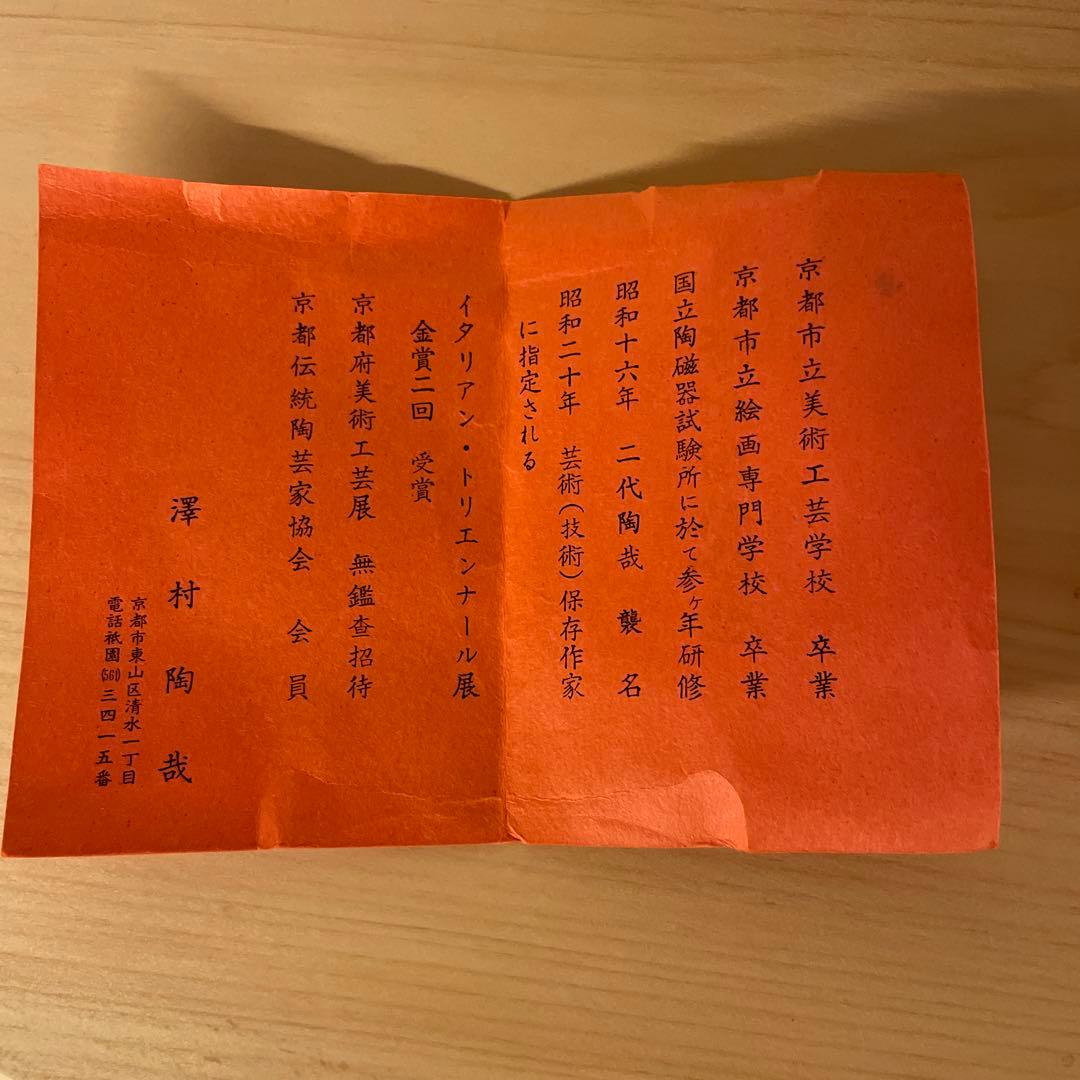 京都市立美術工芸学校 卒業
京都市立絵画専門学校 卒業
国立陶磁器試験所に於て参ヶ年研修
昭和十六年 二代陶哉 襲名
昭和二十年 芸術(技術)保存作家
に指定される
イタリアン・トリエンナール展
金賞二回 受賞
京都府美術工芸展 無鑑査招待
京都伝統陶芸家協会 会員
澤村陶哉
京都市東山区清水一丁目
電話祇園(561)三四一五番